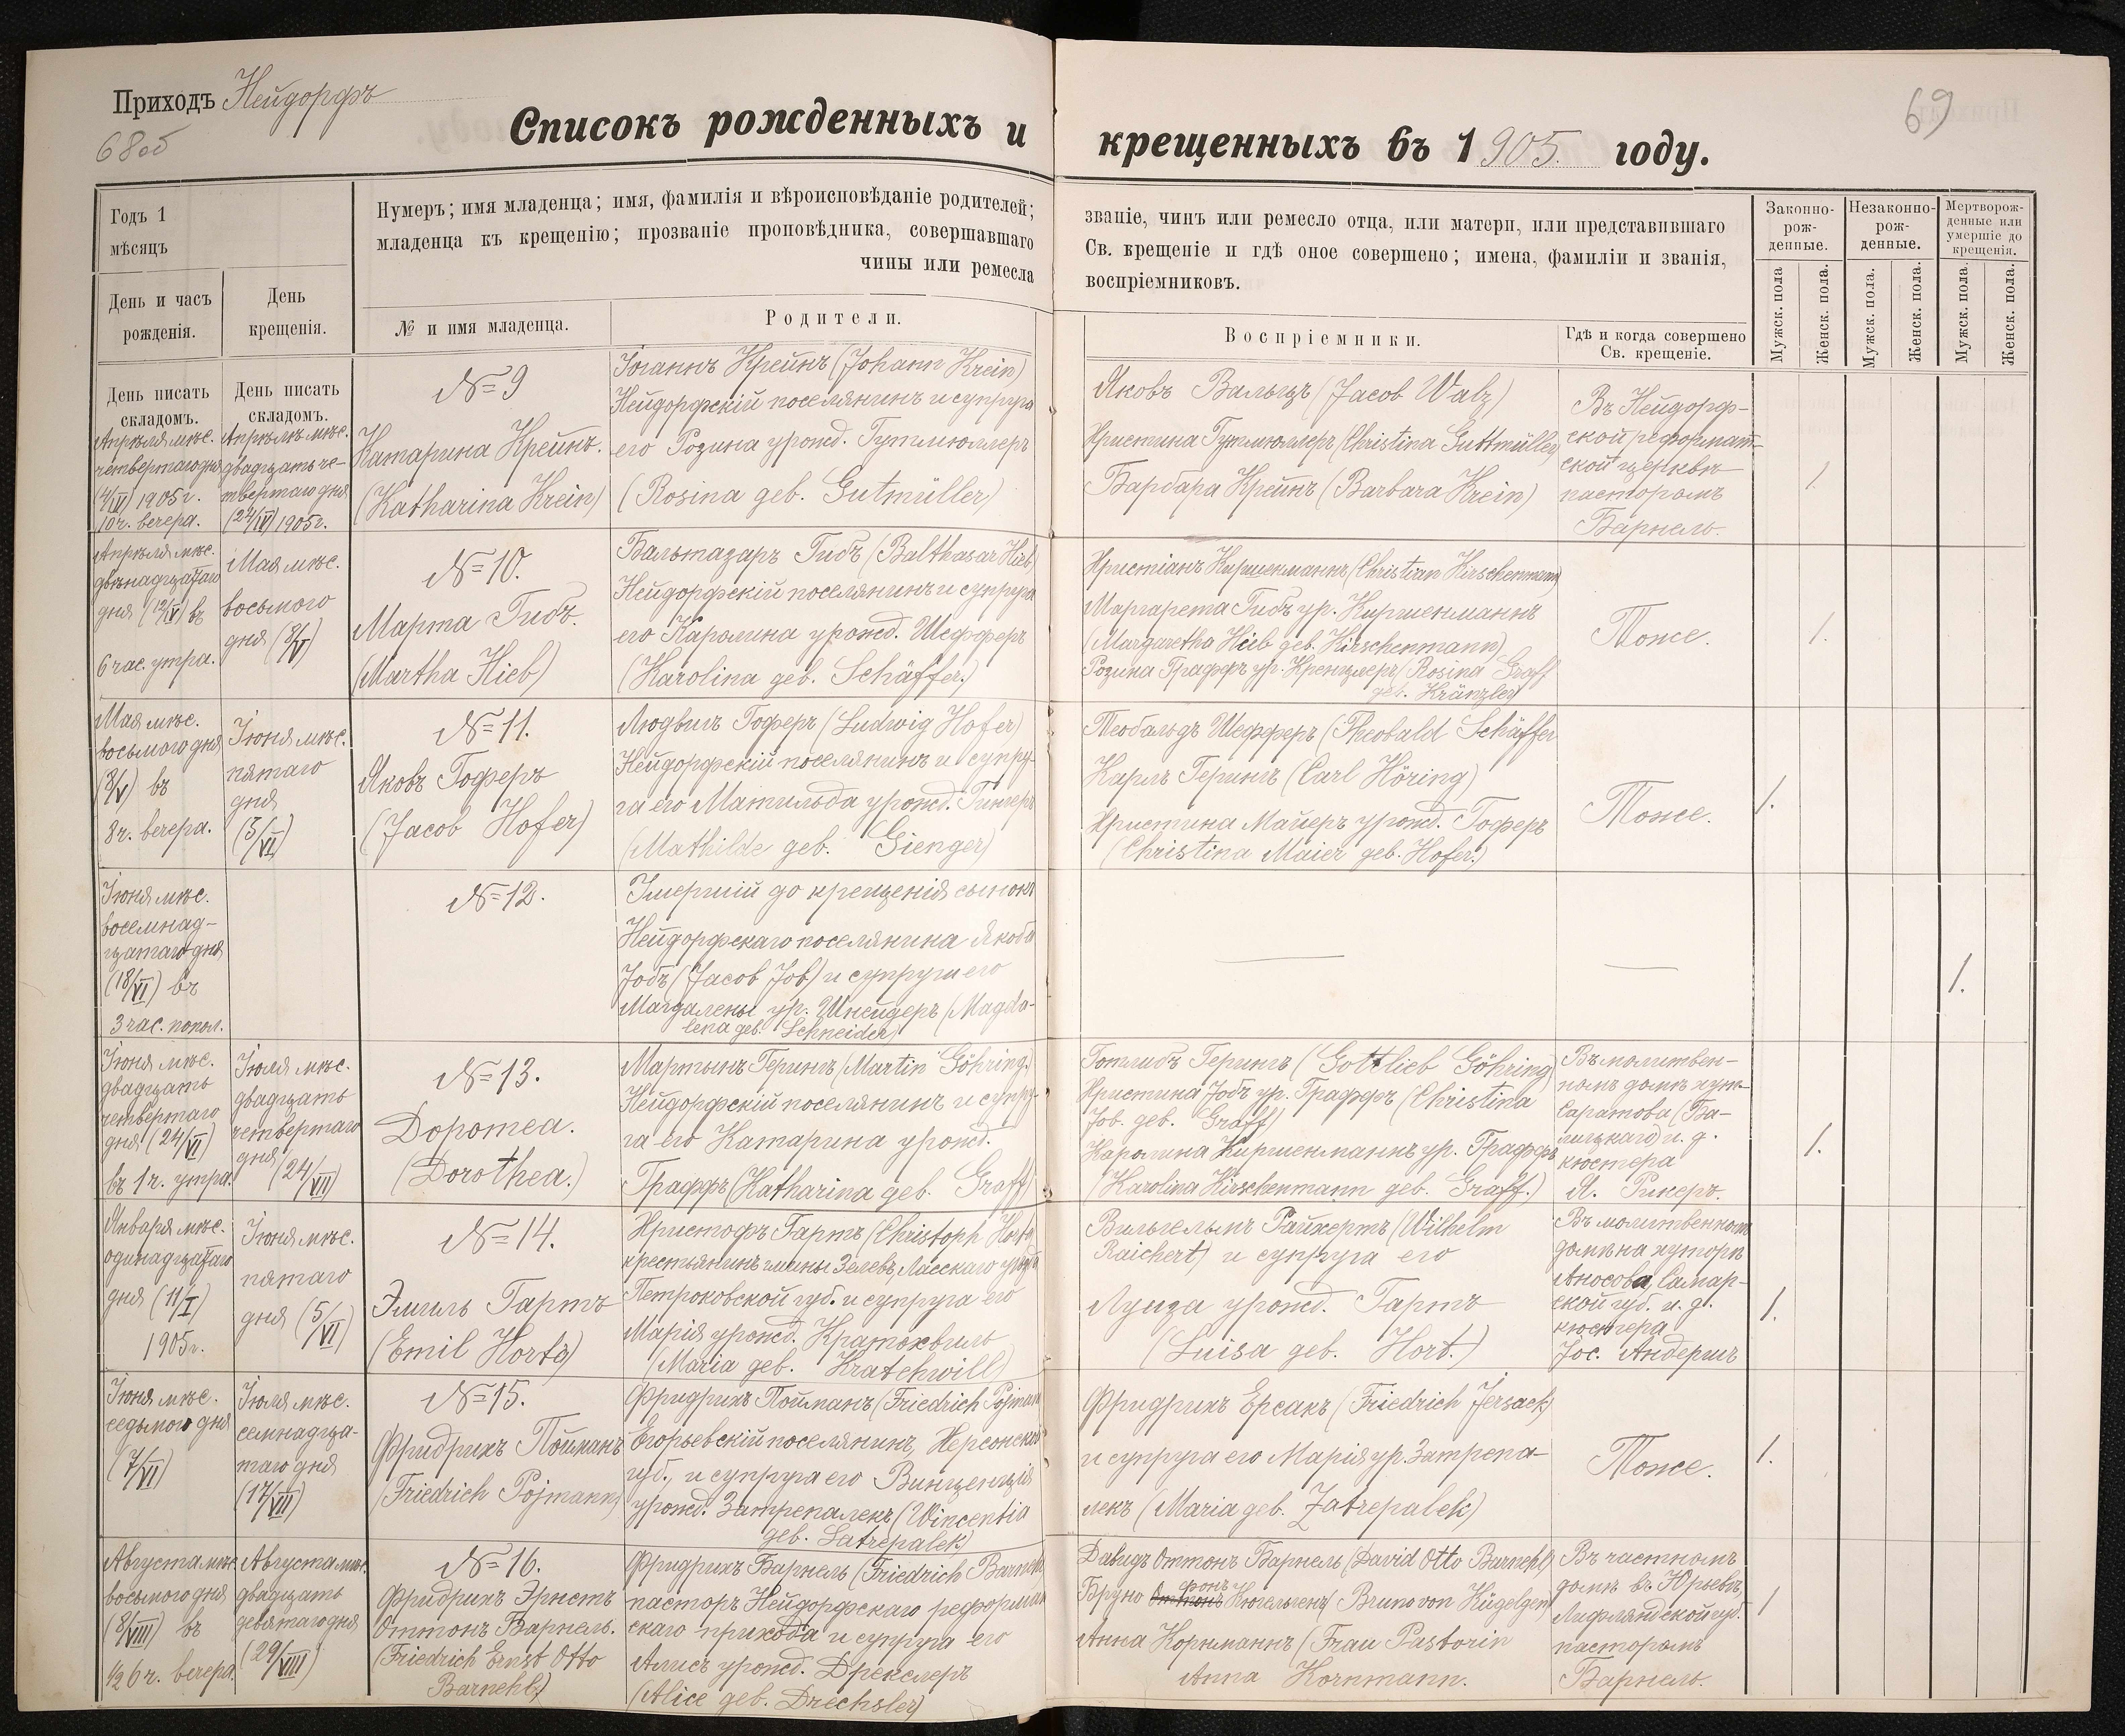 Приходъ Нейдорфъ
68об
69
Списокъ рожденныхъ и крещенныхъ въ 1905. году.
Годъ 1
мѣсяцъ
Нумеръ; имя младенца; имя, фамилія и вѣроисповѣданіе родителей;
младенца къ крещенію; прозваніе проповѣдника, совершавшаго
чины или ремесла
званіе, чинъ или ремесло отца, или матери, или представившаго
Св. крещеніе и гдѣ оное совершено; имена, фамиліи и званія,
воспріемниковъ.
Законно-
рож-
денные.
Незаконно-
рож-
денные.
Мертворож-
денные или
умершіе до
крещенія.
День и часъ
рожденія.
День
крещенія.
№ и имя младенца.
Родители.
Воспріемники.
Гдѣ и когда совершено
Св. крещеніе.
Мужск. пола
Женск. пола.
Мужск. пола.
Женск. пола.
Мужск. пола.
Женск. пола.
День писать
складомъ.
День писать
складомъ.
Апрѣля мѣс.
четвертаго дня
(4/IV) 1905г.
10ч. вечера.
Апрѣля мѣс.
двадцать че-
твертаго дня
(24/IV) 1905г.
№ 9
Катарина Крейнъ.
(Katharina Krein)
Іоганнъ Крейнъ (Johann Krein)
Нейдорфскій поселянинъ и супруга
его Розина урожд. Гутмюллеръ
(Rosina geb. Gutmüller)
Яковъ Вальцъ (Jacob Walz)
Христина Гутмюллеръ (Christina Guttmüller)
Барбара Крейнъ (Barbara Krein)
Въ Нейдорф-
ской реформат-
ской церкви
пасторомъ
Барнель.
1.
Апрѣля мѣс.
двѣнадцатаго
дня (12/IV) въ
6 час. утра.
Мая мѣс.
восьмого
дня (8/V)
№ 10.
Марта Гибъ.
(Martha Hieb)
Бальтазаръ Гибъ (Balthasar Hieb)
Нейдорфскій поселянинъ и супруга
его Каролина урожд. Шефферъ
(Karolina geb. Schäffer.)
Христіанъ Киршенманнъ (Christian Kirschenmann)
Маргарета Гибъ ур. Киршенманнъ
(Margaretha Hieb geb. Kirschenmann)
Розина Граффъ ур. Кренцлеръ (Rosina Graff
geb. Kränzler)
Тоже.
1.
Мая мѣс.
восьмого дня
(8/V) въ
8ч. вечера.
Іюня мѣс.
пятаго
дня
(5/VI)
№ 11.
Яковъ Гоферъ
(Jacob Hofer)
Людвигъ Гоферъ (Ludwig Hofer)
Нейдорфскій поселянинъ и супру-
га его Матильда урожд. Гингеръ
(Mathilde geb. Gienger)
Теобальдъ Шефферъ (Theobald Schäffer
Карлъ Герингъ (Carl Höring)
Христина Майеръ урожд. Гоферъ
(Christina Maier geb. Hofer.)
Тоже.
1.
Іюня мѣс.
восемнад-
цатаго дня
(18/VI) въ
3 час. попол.
№ 12.
Умершій до крещенія сынокъ
Нейдорфскаго поселянина Якоба
Іобъ (Jacob Job) и супруги его
Магдалены ур. Шнейдеръ (Magda-
lena geb. Schneider)
1.
Іюня мѣс.
двадцать
четвертаго
дня (24/VI)
въ 1ч. утра.
Іюля мѣс.
двадцать
четвертаго
дня (24/VII)
№ 13.
Доротеа.
(Dorothea.)
Мартынъ Герингъ (Martin Göhring.)
Нейдорфскій поселянинъ и супру-
га его Катарина урожд.
Граффъ (Katharina geb. Graff)
Готлибъ Герингъ (Gottlieb Göhring)
Христина Іобъ ур. Граффъ (Christina
Job. geb. Graff)
Каролина Киршенманнъ ур. Граффъ
(Karolina Kirschenmann geb. Graff.)
Въ молитвен-
номъ домѣ хут.
Саратова
и. д.
кюстера
Я. Рикеръ.
1.
Января мѣс.
одинадцатаго
дня (11/I)
1905г.
Іюня мѣс.
пятаго
дня (5/VI)
№ 14.
Эмиль Гартъ
(Emil Horta)
Христофъ Гартъ (Christoph Horta)
крестьянинъ гмины Зелевъ, Ласскаго уѣзда
Петроковской губ. и супруга его
Марія урожд. Кратохвиль
(Maria geb. Kratchwill)
Вильгельмъ Райхертъ (Wilhelm
Raichert) и супруга его
Луиза урожд. Гартъ
(Luisa geb. Hort.)
Въ молитвенномъ
домѣ на хуторѣ
Аносова, Самар-
ской губ. и. д.
кюстера
Іос. Андершъ
1.
Іюня мѣс.
седьмого дня
(7/VI)
Іюля мѣс.
семнадца-
таго дня
(17/VII)
№ 15.
Фридрихъ Пойманъ
(Friedrich Pojmann)
Фридрихъ Пойманъ (Friedrich Pojmann
Егорьевскій поселянинъ, Херсонской
губ., и супруга его Винценція
урожд. Затрепалекъ (Wincentia
geb. Satrepalek)
Фридрихъ Ерсакъ (Friedrich Jersack)
и супруга его Марія ур. Затрепа-
лекъ (Maria geb. Zatrepalek)
Тоже.
1.
Августа мѣс.
восьмого дня
(8/VIII) въ
½ 6 ч. вечера.
Августа мѣс.
двадцать
девятаго дня
(29/VIII)
№ 16.
Фридрихъ Эрнстъ
Оттонъ Барнель.
(Friedrich Ernst Otto
Barnehl)
Фридрихъ Барнель (Friedrich Barnehl)
пасторъ Нейдорфскаго реформат-
скаго прихода и супруга его
Алисъ урожд. Дрекслеръ
(Alice geb. Drechsler)
Давидъ Оттонъ Барнель (David Otto Barnehl)
Бруно Оттонъ фонъ Кюгельгенъ (Bruno von Kügelgen)
Анна Корнманнъ (Frau Pastorin
Anna Kornmann.
Въ частномъ
домѣ въ Юрьевѣ,
Лифляндской губ.
пасторомъ
Барнель.
1